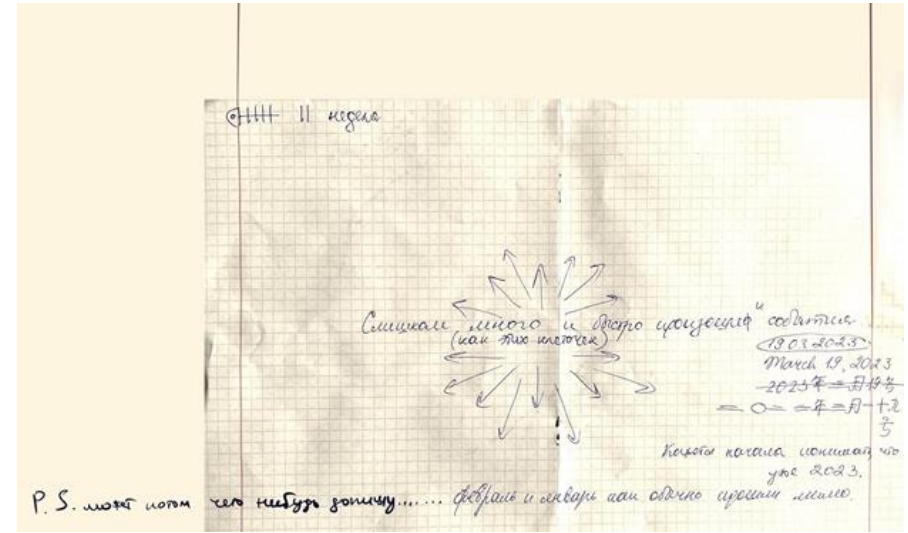 11 неделя
Слишком много и быстро произошло событий
(как тих клеточек)
19.03.2023
March 19, 2023
2023年三月19号
二〇二三年三月十九号
Кажется начала понимать, что
уже 2023.
P. S. может потом чего нибудь допишу....... февраль и январь как обычно прошли мимо.